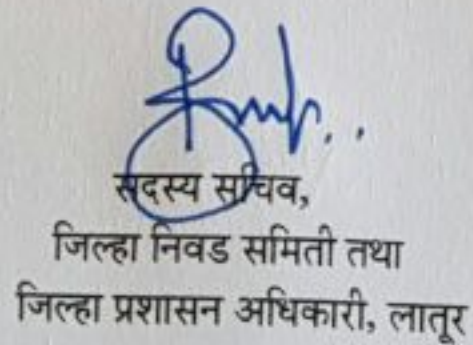 सदस्य सचिव,
जिल्हा निवड समिती तथा
जिल्हा प्रशासन अधिकारी, लातूर